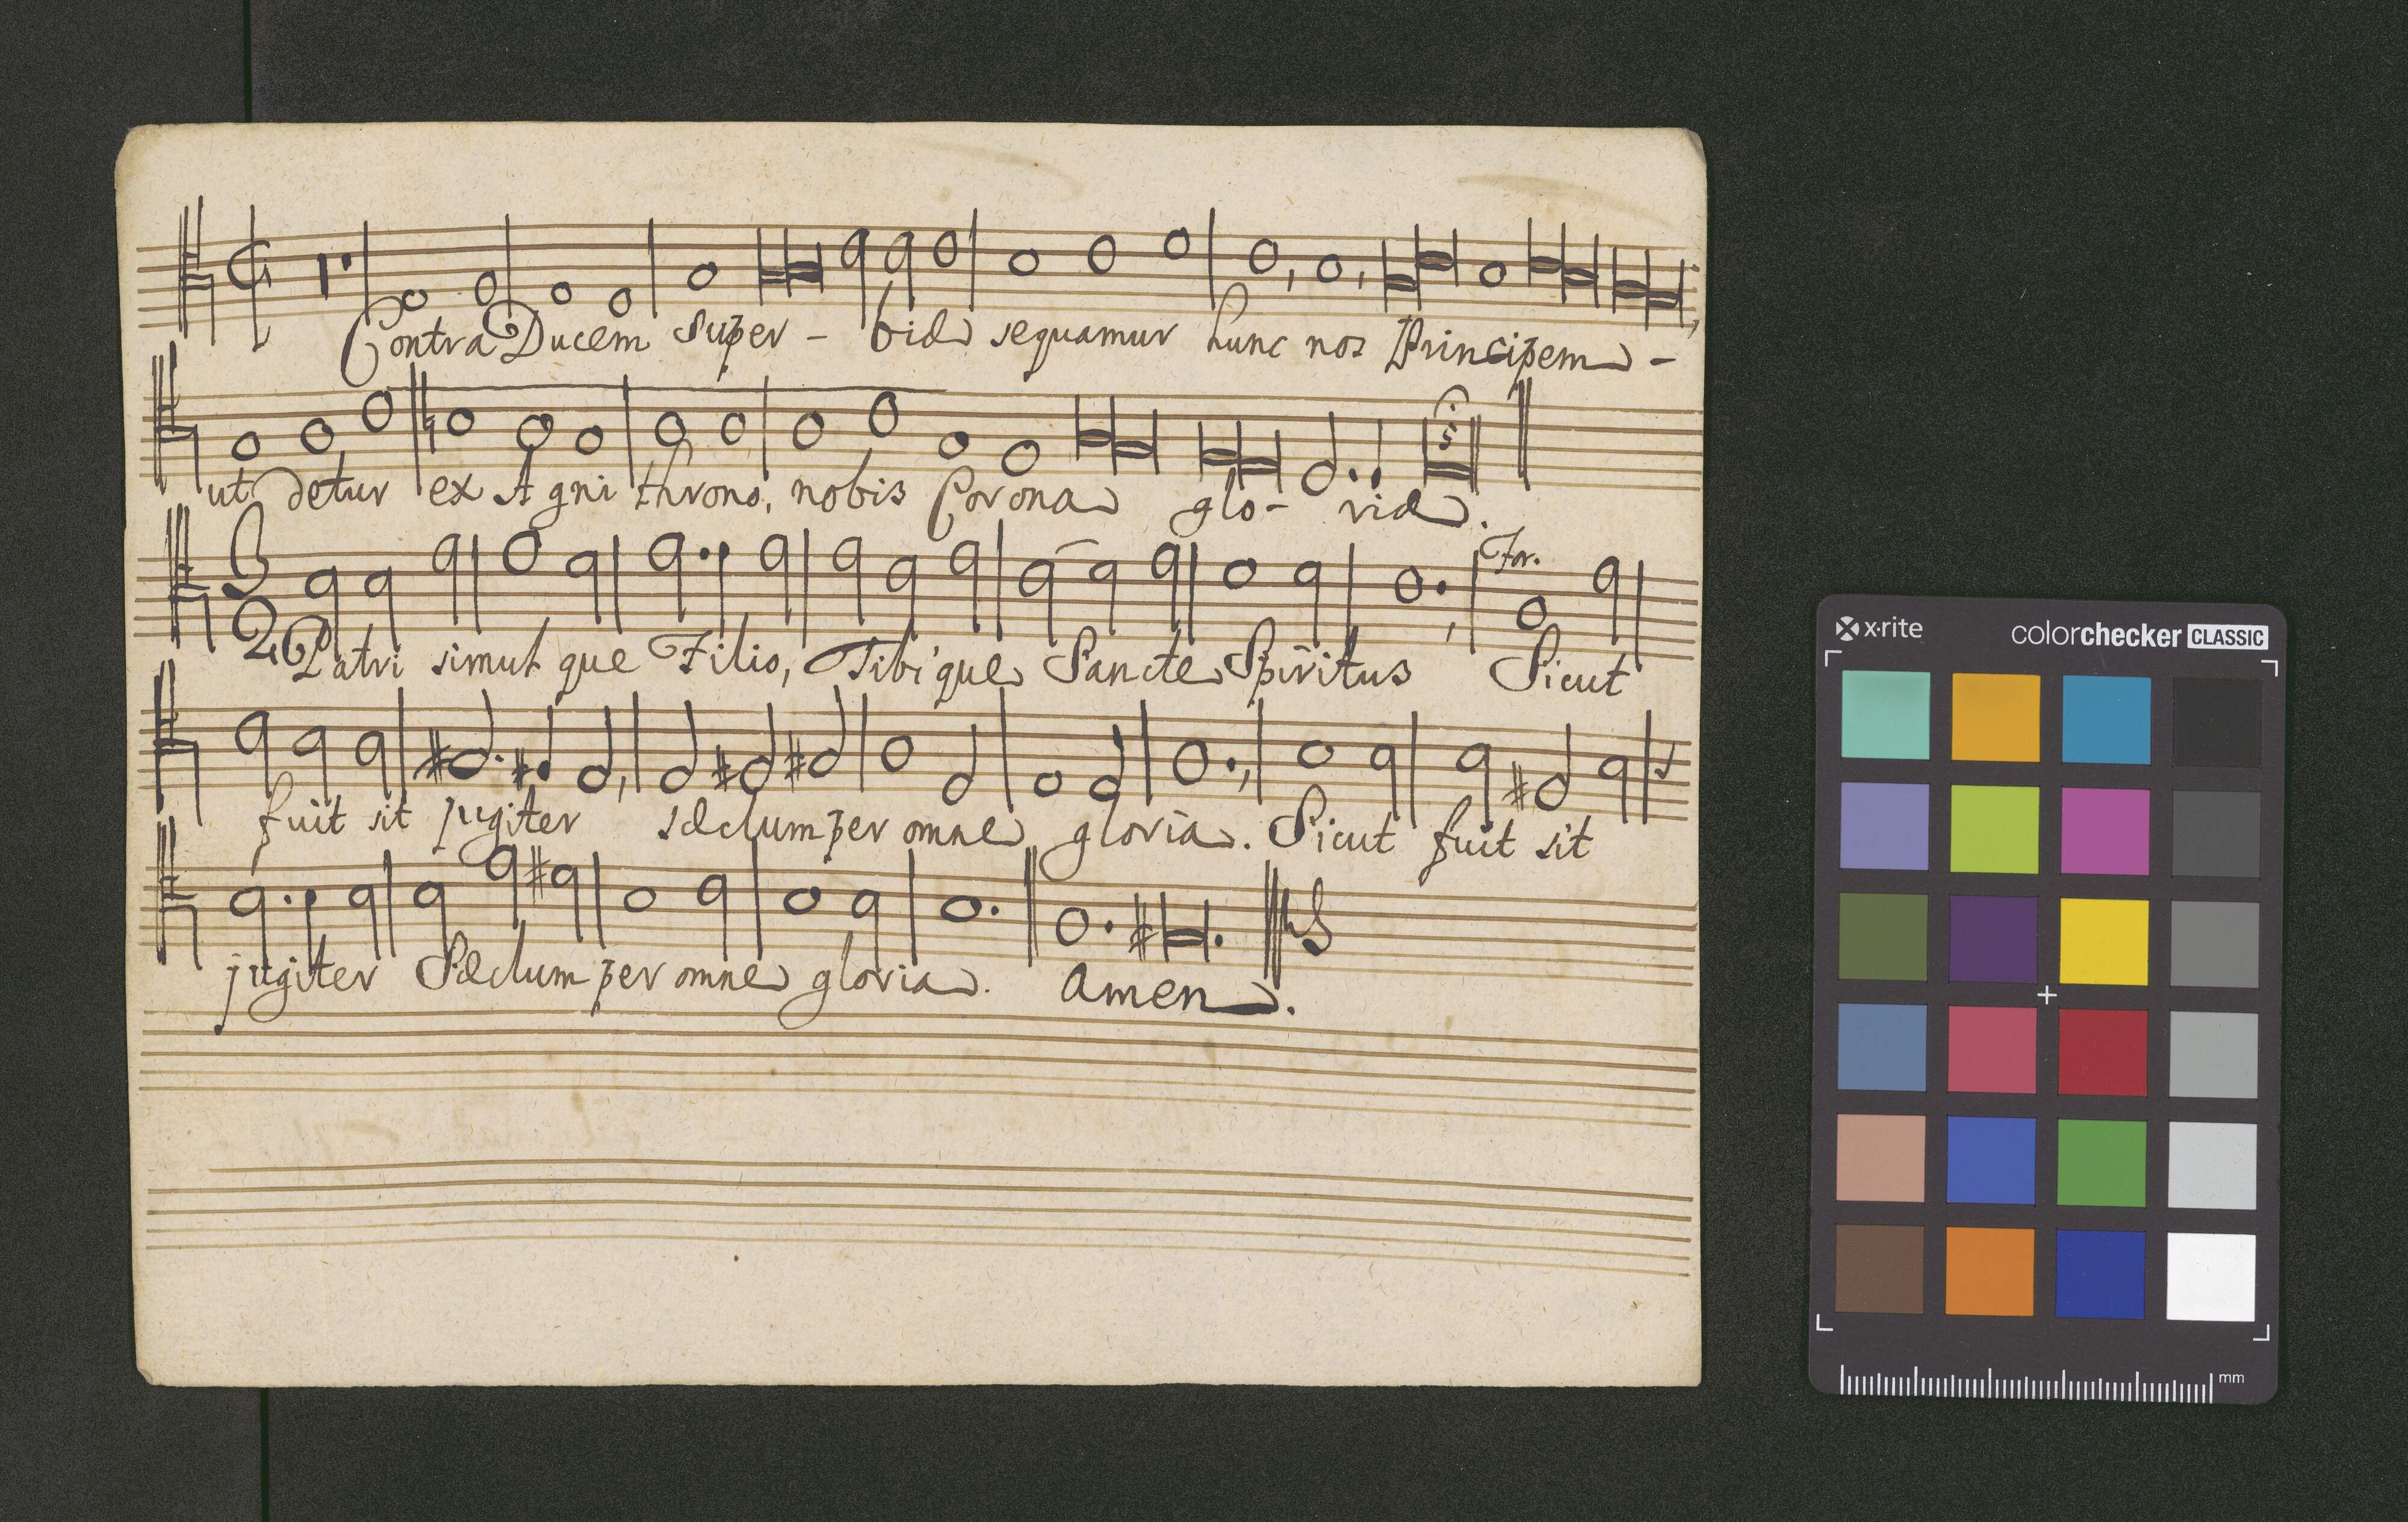 Contra Ducem Super - biæ sequamur hunc nos Principem -
ut detur ex Agni throno, nobis Corona glo- riæ.
For.
Patri simul que Filio, Tibi que Sancte Spiritus Sicut
fuit sit jugiter sæclum per omne gloria. Sicut fuit sit
jugiter Sæclum per omne gloria. Amen.
x·rite
colorchecker CLASSIC
mm